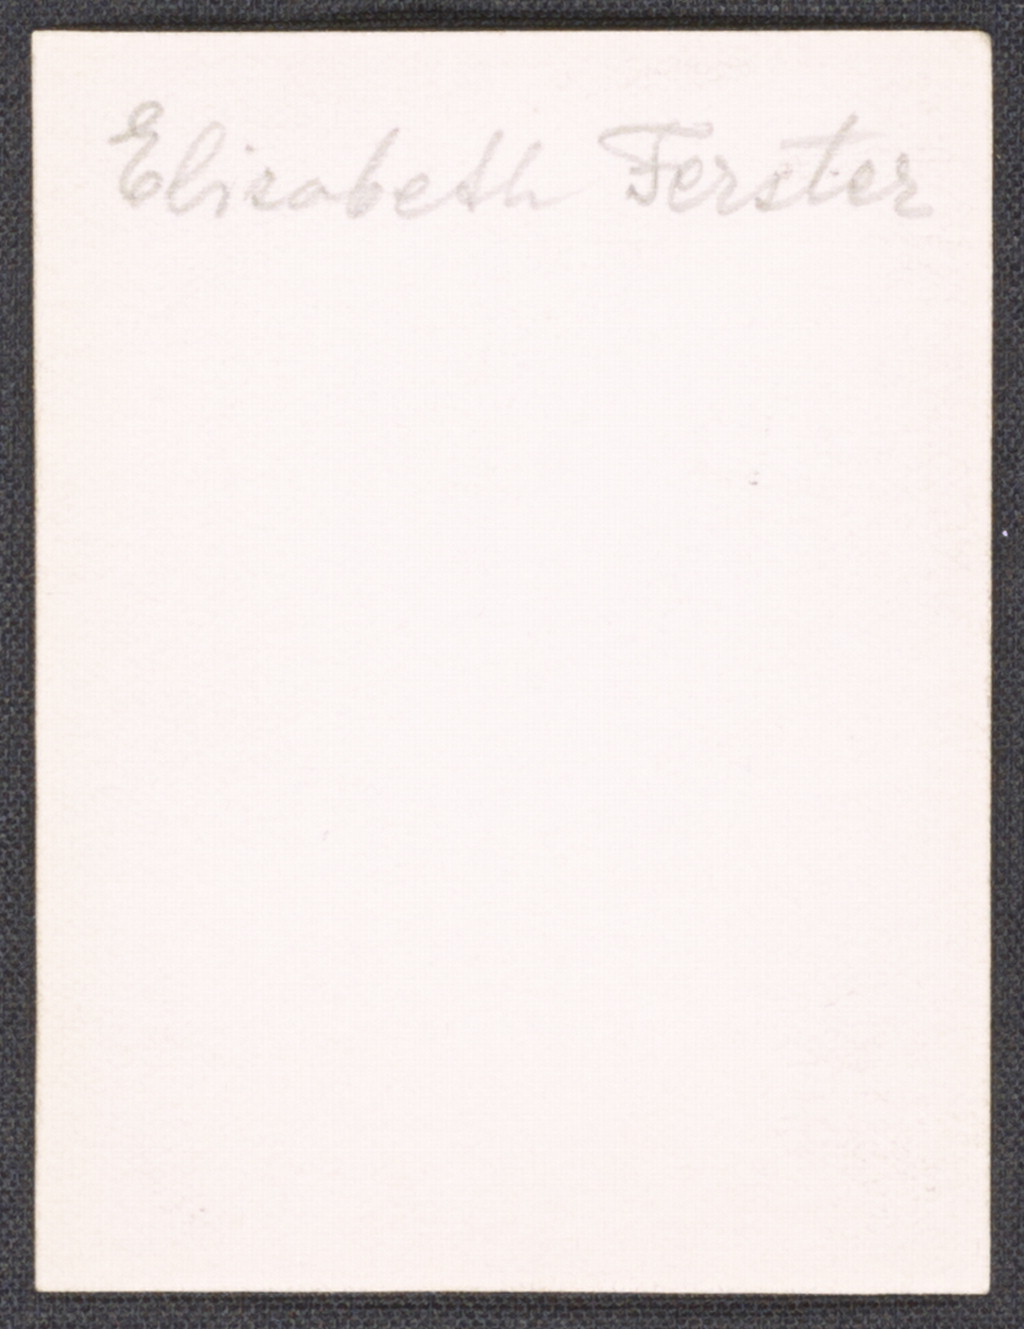 Elisabeth Ferster